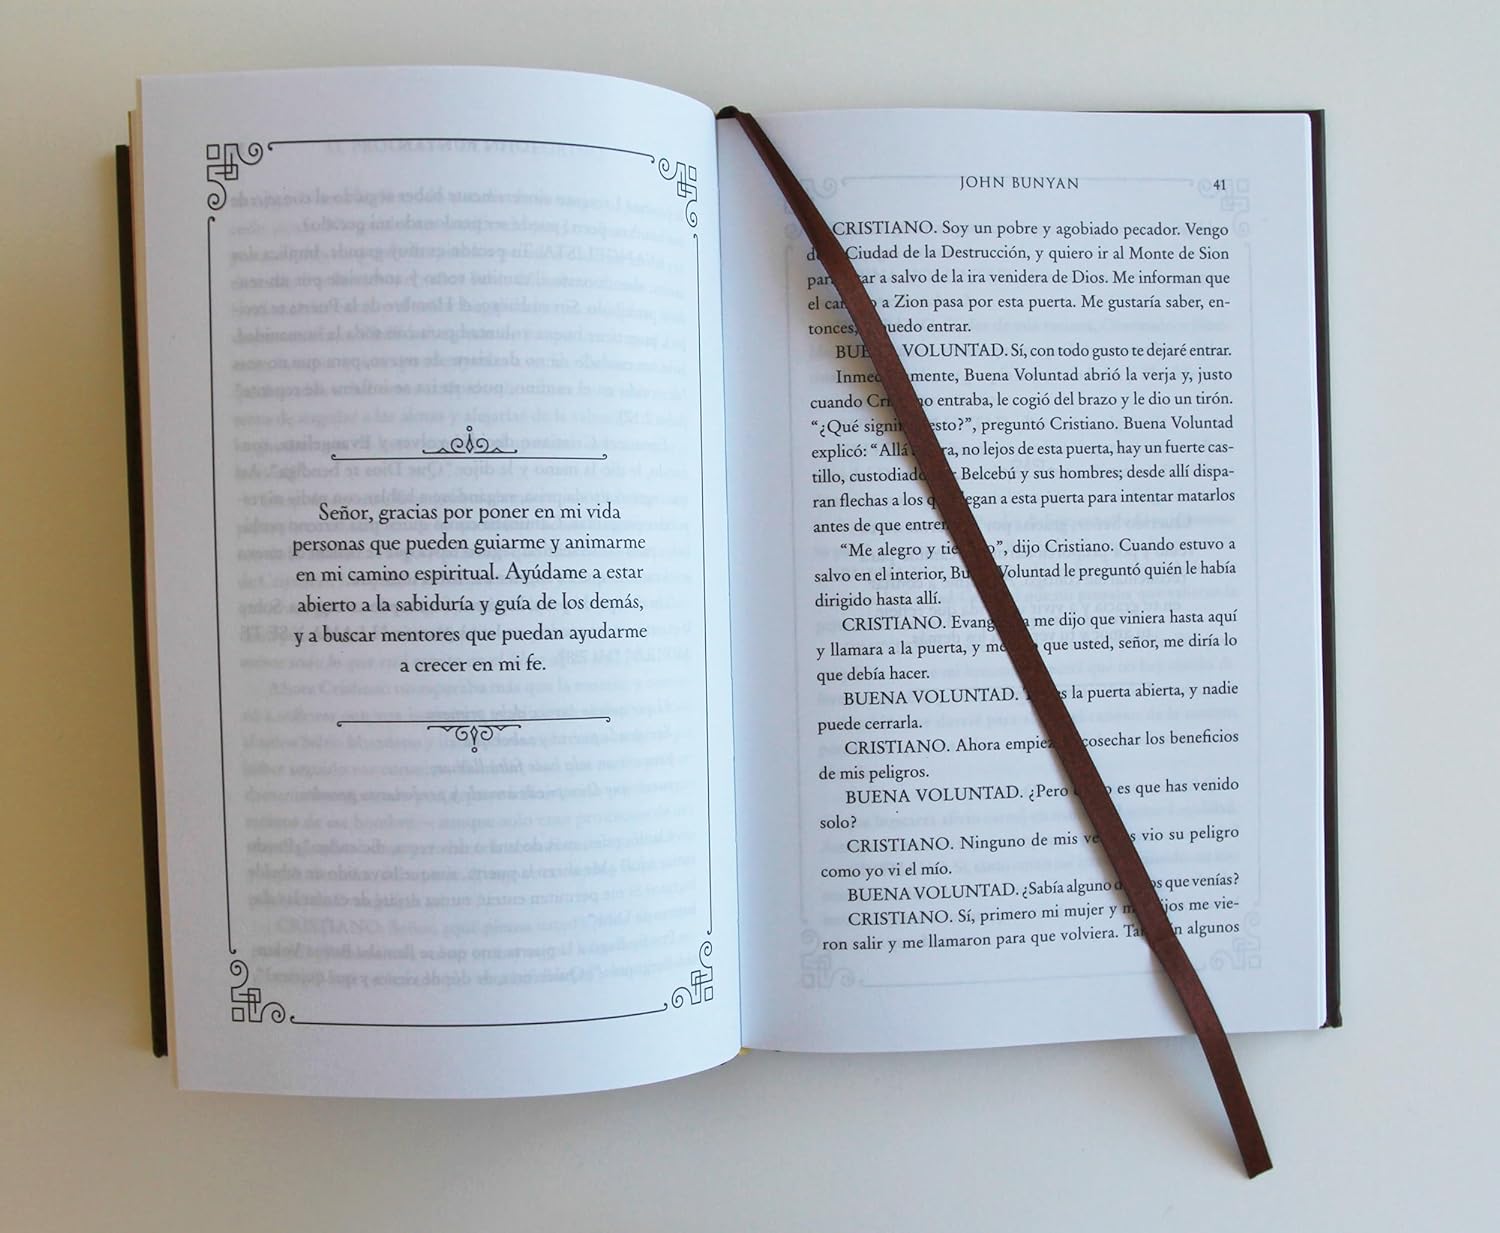 Señor, gracias por poner en mi vida
personas que pueden guiarme y animarme
en mi camino espiritual. Ayúdame a estar
abierto a la sabiduría y guía de los demás,
y a buscar mentores que puedan ayudarme
a crecer en mi fe.
JOHN BUNYAN 41
CRISTIANO. Soy un pobre y agobiado pecador. Vengo
Ciudad de la Destrucción, y quiero ir al Monte de Sion
a salvo de la ira venidera de Dios. Me informan que
el a Zion pasa por esta puerta. Me gustaría saber, en-
tonces, puedo entrar.
BUENA VOLUNTAD. Sí, con todo gusto te dejaré entrar.
Inmediatamente, Buena Voluntad abrió la verja y, justo
cuando Cristiano entraba, le cogió del brazo y le dio un tirón.
“¿Qué significa esto?”, preguntó Cristiano. Buena Voluntad
explicó: “Allá no lejos de esta puerta, hay un fuerte cas-
tillo, custodiado por Belcebú y sus hombres; desde allí dispa-
ran flechas a los que llegan a esta puerta para intentar matarlos
antes de que entren”.
“Me alegro y tiemblo”, dijo Cristiano. Cuando estuvo a
salvo en el interior, Buena Voluntad le preguntó quién le había
dirigido hasta allí.
CRISTIANO. Evangelista me dijo que viniera hasta aquí
y llamara a la puerta, y me dijo que usted, señor, me diría lo
que debía hacer.
BUENA VOLUNTAD. la puerta abierta, y nadie
puede cerrarla.
CRISTIANO. Ahora empiezo a cosechar los beneficios
de mis peligros.
BUENA VOLUNTAD. ¿Pero cómo es que has venido
solo?
CRISTIANO. Ninguno de mis vecinos vio su peligro
como yo vi el mío.
BUENA VOLUNTAD. ¿Sabía alguno de ellos que venías?
CRISTIANO. Sí, primero mi mujer y mis hijos me vie-
ron salir y me llamaron para que volviera. También algunos